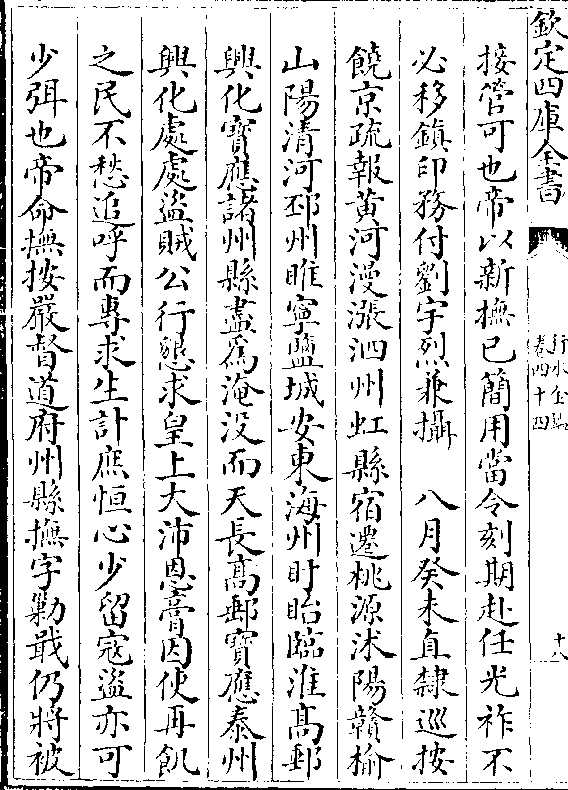 欽定四庫全書
行水金鑑
卷四十四
十八
接管可也帝以新撫已簡用當令刻期赴任光祚不
必移鎮印務付劉宇烈兼攝　八月癸未直隸巡按
饒京疏報黄河漫漲泗州虹縣宿遷桃源沭陽贛榆
山陽清河邳州睢寧鹽城安東海州盱眙臨淮高郵
興化寶應諸州縣盡為淹没而天長高郵寶應泰州
興化處處盜賊公行懇求皇上大沛恩膏囙使再飢
之民不愁追呼而專求生計庶恒心少留寇盜亦可
少弭也帝命撫按嚴督道府州縣撫字勦戢仍將被